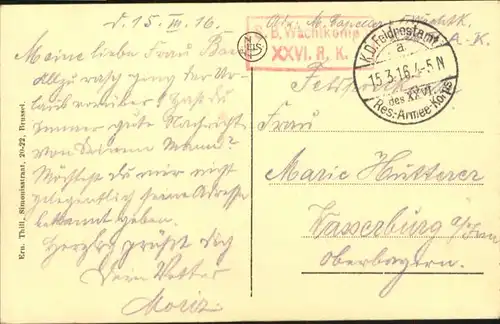 d. 15. III. 16.
Meine liebe Frau Base
Allzu rasch ging der Ur-
laub vorüber! Hast du
immer gute Nachricht
von Deinem Mann?
Möchtest du mir nicht
gelegentlich seine Adresse
bekannt geben.
Herzlich grüßt Dich
Dein Vetter
Moriz
Ern. Thill, Simonisstraat, 20-22, Brussel.
NELS
Abs. M. Capeller
B. Wachtkomp
XXVI. R. K.
K.D. Feldpostamt
a.
15.3.16. 4-5 N
des XXVI.
Res.-Armee-Korps
Feldpost
Frau
Marie Hütterer
Wasserburg a/Inn
Oberbayern.